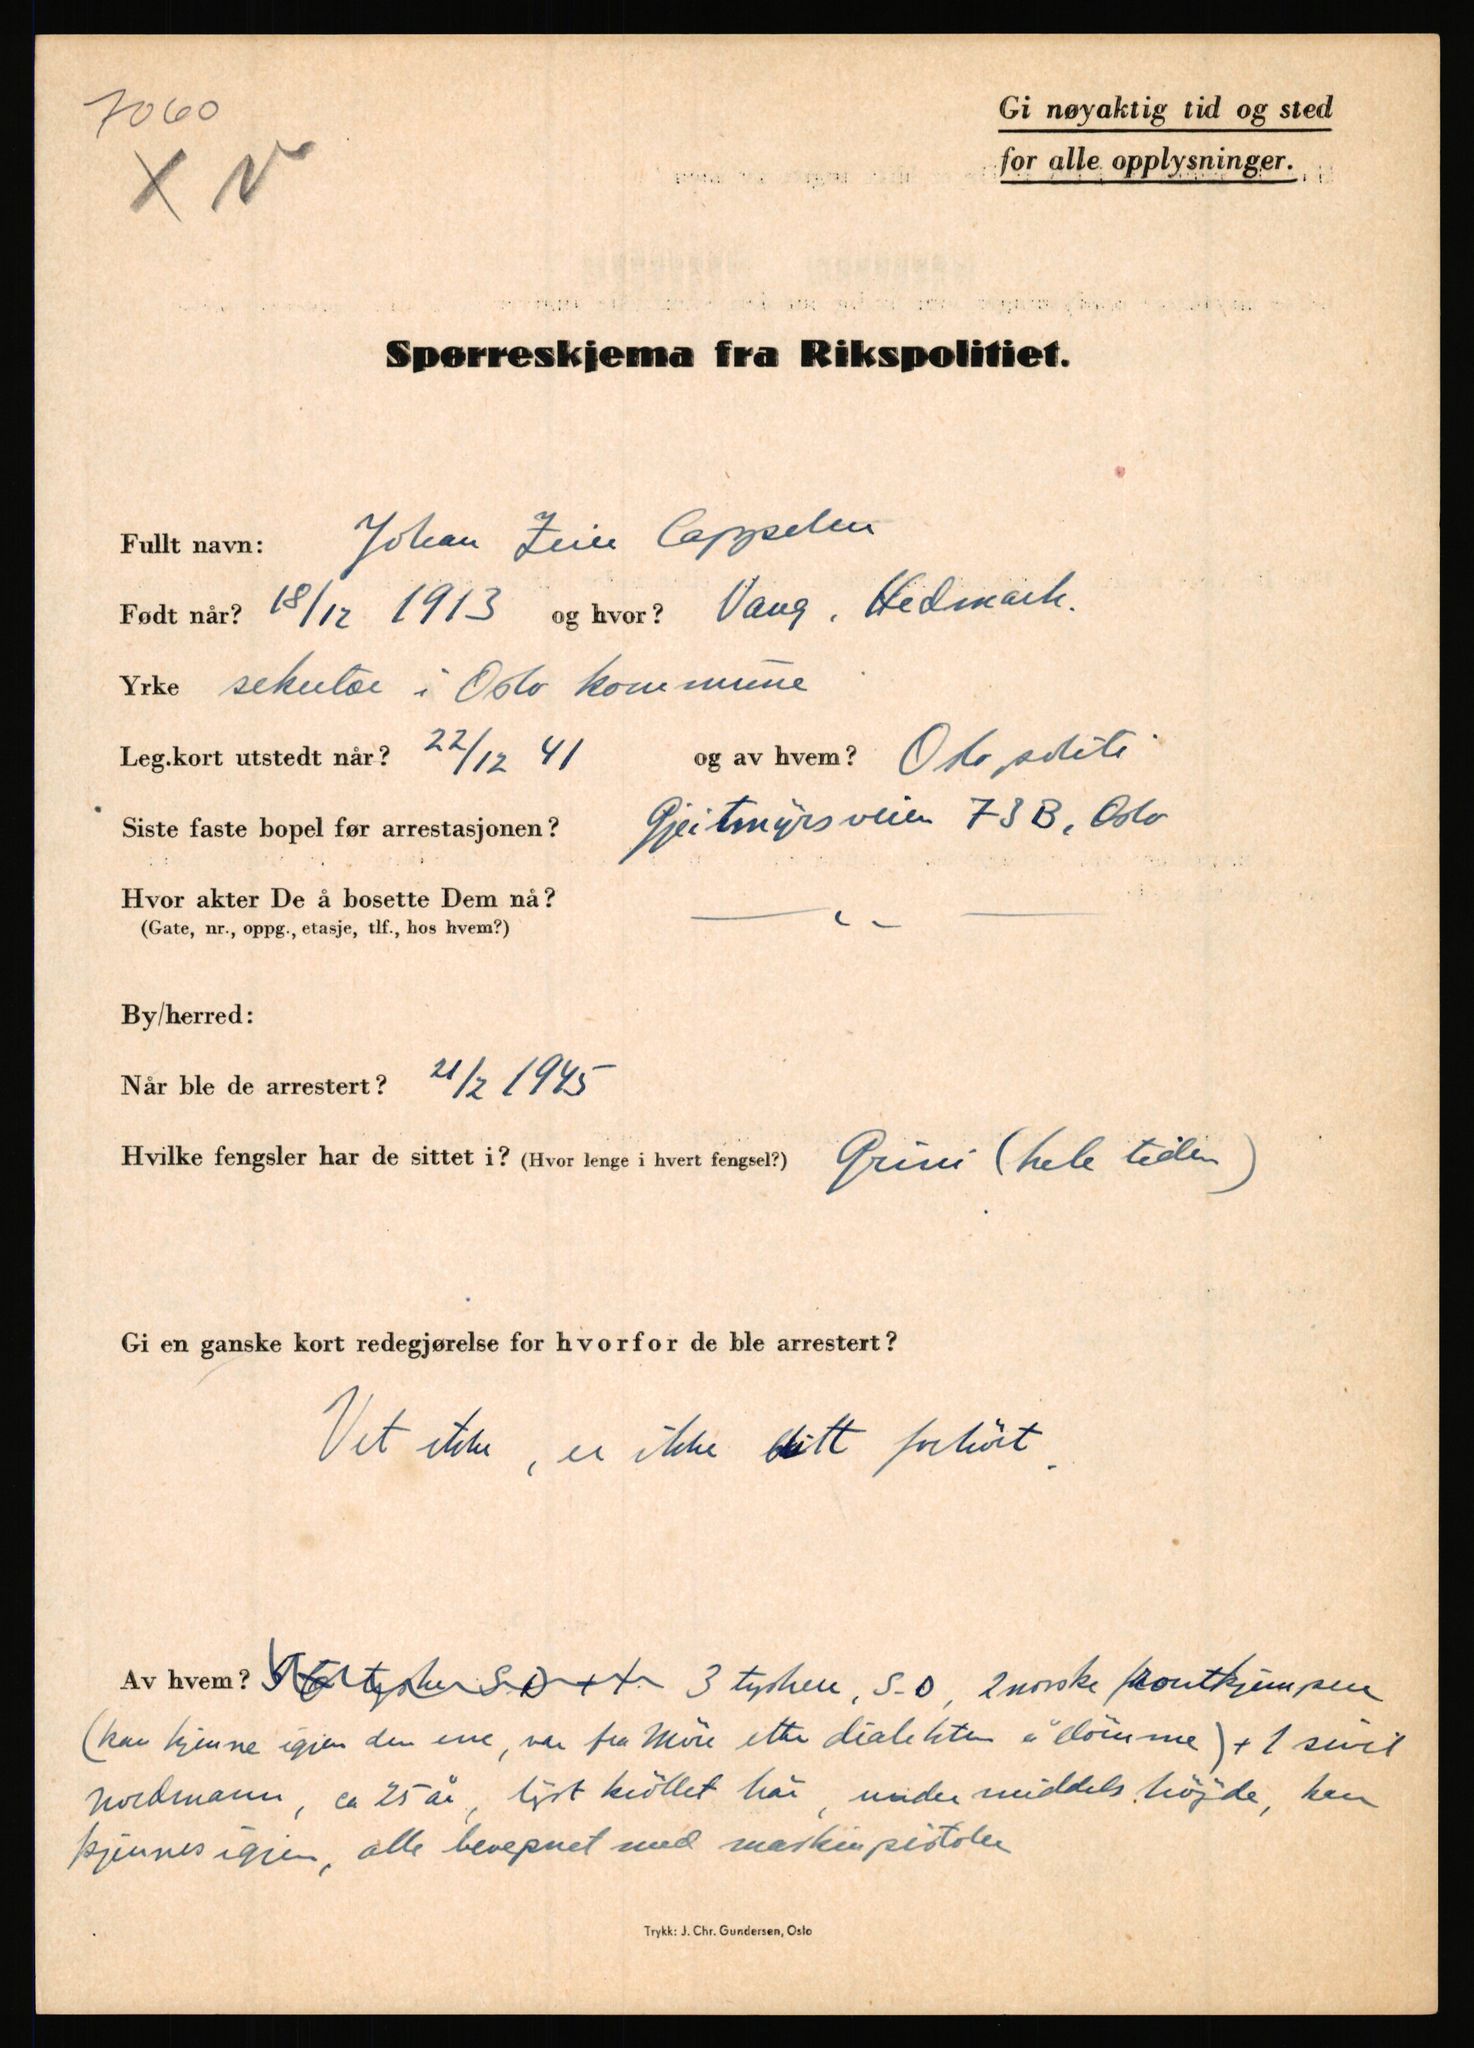 7060
X V
Gi nøyaktig tid og sted
for alle opplysninger.
Spørreskjema fra Rikspolitiet.
Fullt navn: Johan Zeier Cappelen
Født når? 18/12 1913 og hvor? Vang, Hedmark.
Yrke sekretær i Oslo kommune
Leg.kort utstedt når? 22/12 41 og av hvem? Oslo politi
Siste faste bopel før arrestasjonen? Gjeitmyrsveien 73B, Oslo
Hvor akter De å bosette Dem nå? — " —
(Gate, nr., oppg., etasje, tlf., hos hvem?)
By/herred:
Når ble de arrestert? 21/2 1945
Hvilke fengsler har de sittet i? (Hvor lenge i hvert fengsel?) Grini (hele tiden)
Gi en ganske kort redegjørelse for hvorfor de ble arrestert?
Vet ikke, er ikke blitt forhört.
Av hvem? 3 tyskere, S.D, 2 norske frontkjempere
(kan kjenne igjen den ene, var fra Möre etter dialekten å dömme) + 1 sivil
nordmann, ca 25 år, lyst kröllet hår, under middels höyde, kan
kjennes igjen, alle bevepnet med maskinpistoler
Trykk: J. Chr. Gundersen, Oslo